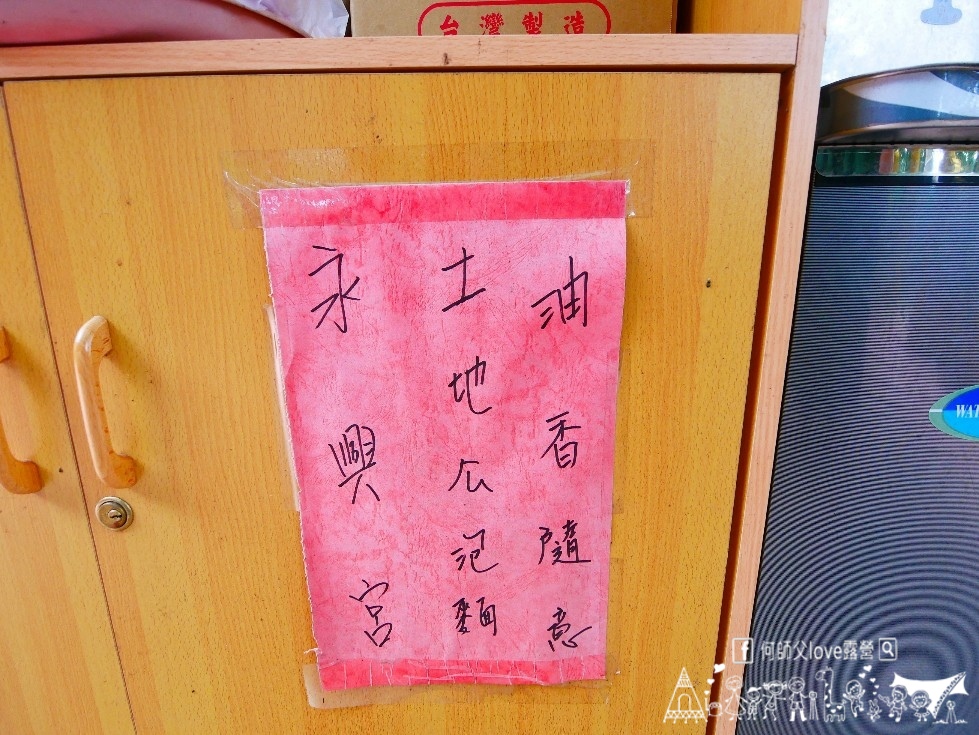 台灣製造
油香隨意
土地公泡麵
永興宮
WAT
何師父love露營